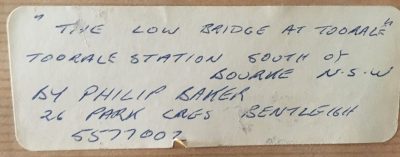 "THE LOW BRIDGE AT TOORALE"
TOORALE STATION SOUTH OF
BOURKE N.S.W
BY PHILIP BAKER
26 PARK CRES BENTLEIGH
5577007